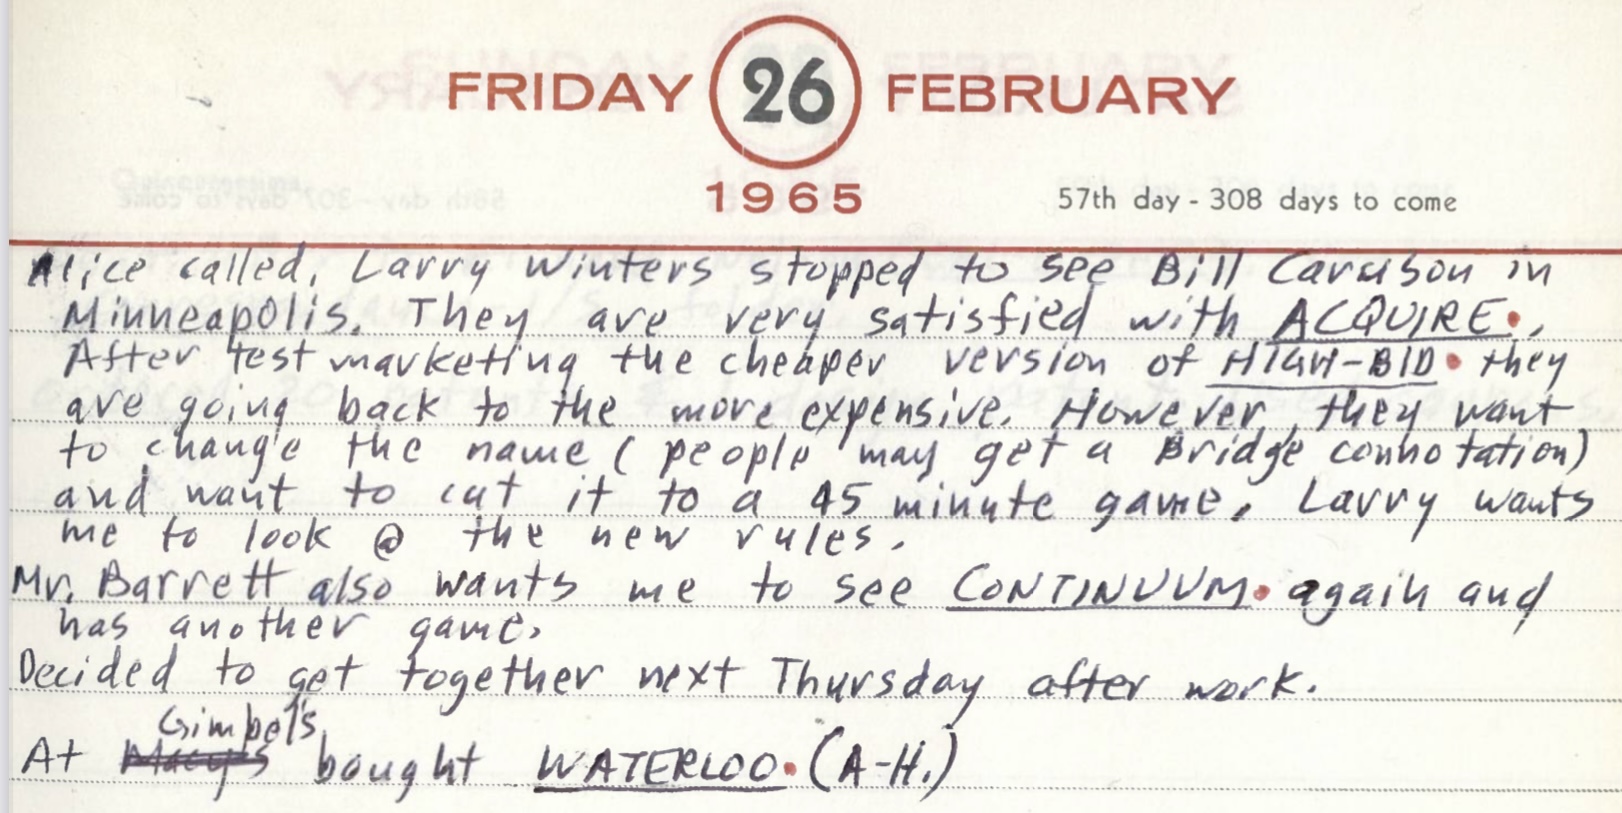 FRIDAY 26 FEBRUARY
1965
57th day - 308 days to come
Alice called. Larry Winters stopped to see Bill Caruson in
Minneapolis. They are very satisfied with ACQUIRE.
After test marketing the cheaper version of HIGH-BID they
are going back to the more expensive. However, they want
to change the name (people may get a Bridge connotation)
and want to cut it to a 45 minute game. Larry wants
me to look @ the new rules.
Mr. Barrett also wants me to see CONTINUUM again and
has another game.
Decided to get together next Thursday after work.
Gimbel's
At Macy's bought WATERLOO. (A-H.)